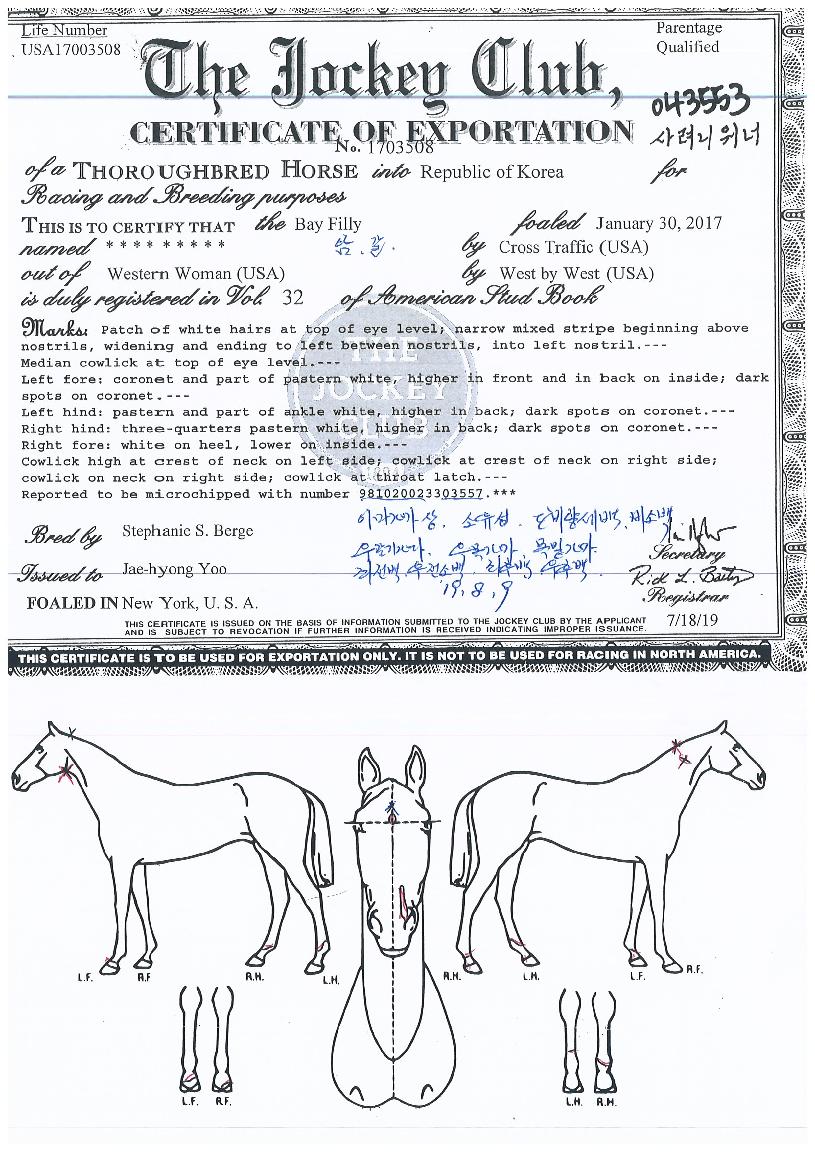 Life Number
USA17003508
Parentage
Qualified
The Jockey Club,
043553
사려니위너
CERTIFICATE OF EXPORTATION
No. 1703508
of a THOROUGHBRED HORSE into Republic of Korea for
Racing and Breeding purposes
THIS IS TO CERTIFY THAT the Bay Filly foaled January 30, 2017
named * * * * * * * * * by Cross Traffic (USA)
out of Western Woman (USA) by West by West (USA)
is duly registered in Vol. 32 of American Stud Book
Marks: Patch of white hairs at top of eye level; narrow mixed stripe beginning above
nostrils, widening and ending to left between nostrils, into left nostril.---
Median cowlick at top of eye level.---
Left fore: coronet and part of pastern white, higher in front and in back on inside; dark
spots on coronet.---
Left hind: pastern and part of ankle white, higher in back; dark spots on coronet.---
Right hind: three-quarters pastern white, higher in back; dark spots on coronet.---
Right fore: white on heel, lower on inside.---
Cowlick high at crest of neck on left side; cowlick at crest of neck on right side;
cowlick on neck on right side; cowlick at throat latch.---
Reported to be microchipped with number 981020023303557.***
THE
JOCKEY
CLUB
Bred by Stephanie S. Berge
Secretary
Issued to Jae-hyong Yoo
19, 8, 9
Rick L. Bailey
Registrar
FOALED IN New York, U. S. A.
7/18/19
THIS CERTIFICATE IS ISSUED ON THE BASIS OF INFORMATION SUBMITTED TO THE JOCKEY CLUB BY THE APPLICANT
AND IS SUBJECT TO REVOCATION IF FURTHER INFORMATION IS RECEIVED INDICATING IMPROPER ISSUANCE.
THIS CERTIFICATE IS TO BE USED FOR EXPORTATION ONLY. IT IS NOT TO BE USED FOR RACING IN NORTH AMERICA.
L.F. R.F R.H. L.H. R.H. L.H. L.F. R.F.
L.F. R.F. L.H. R.H.